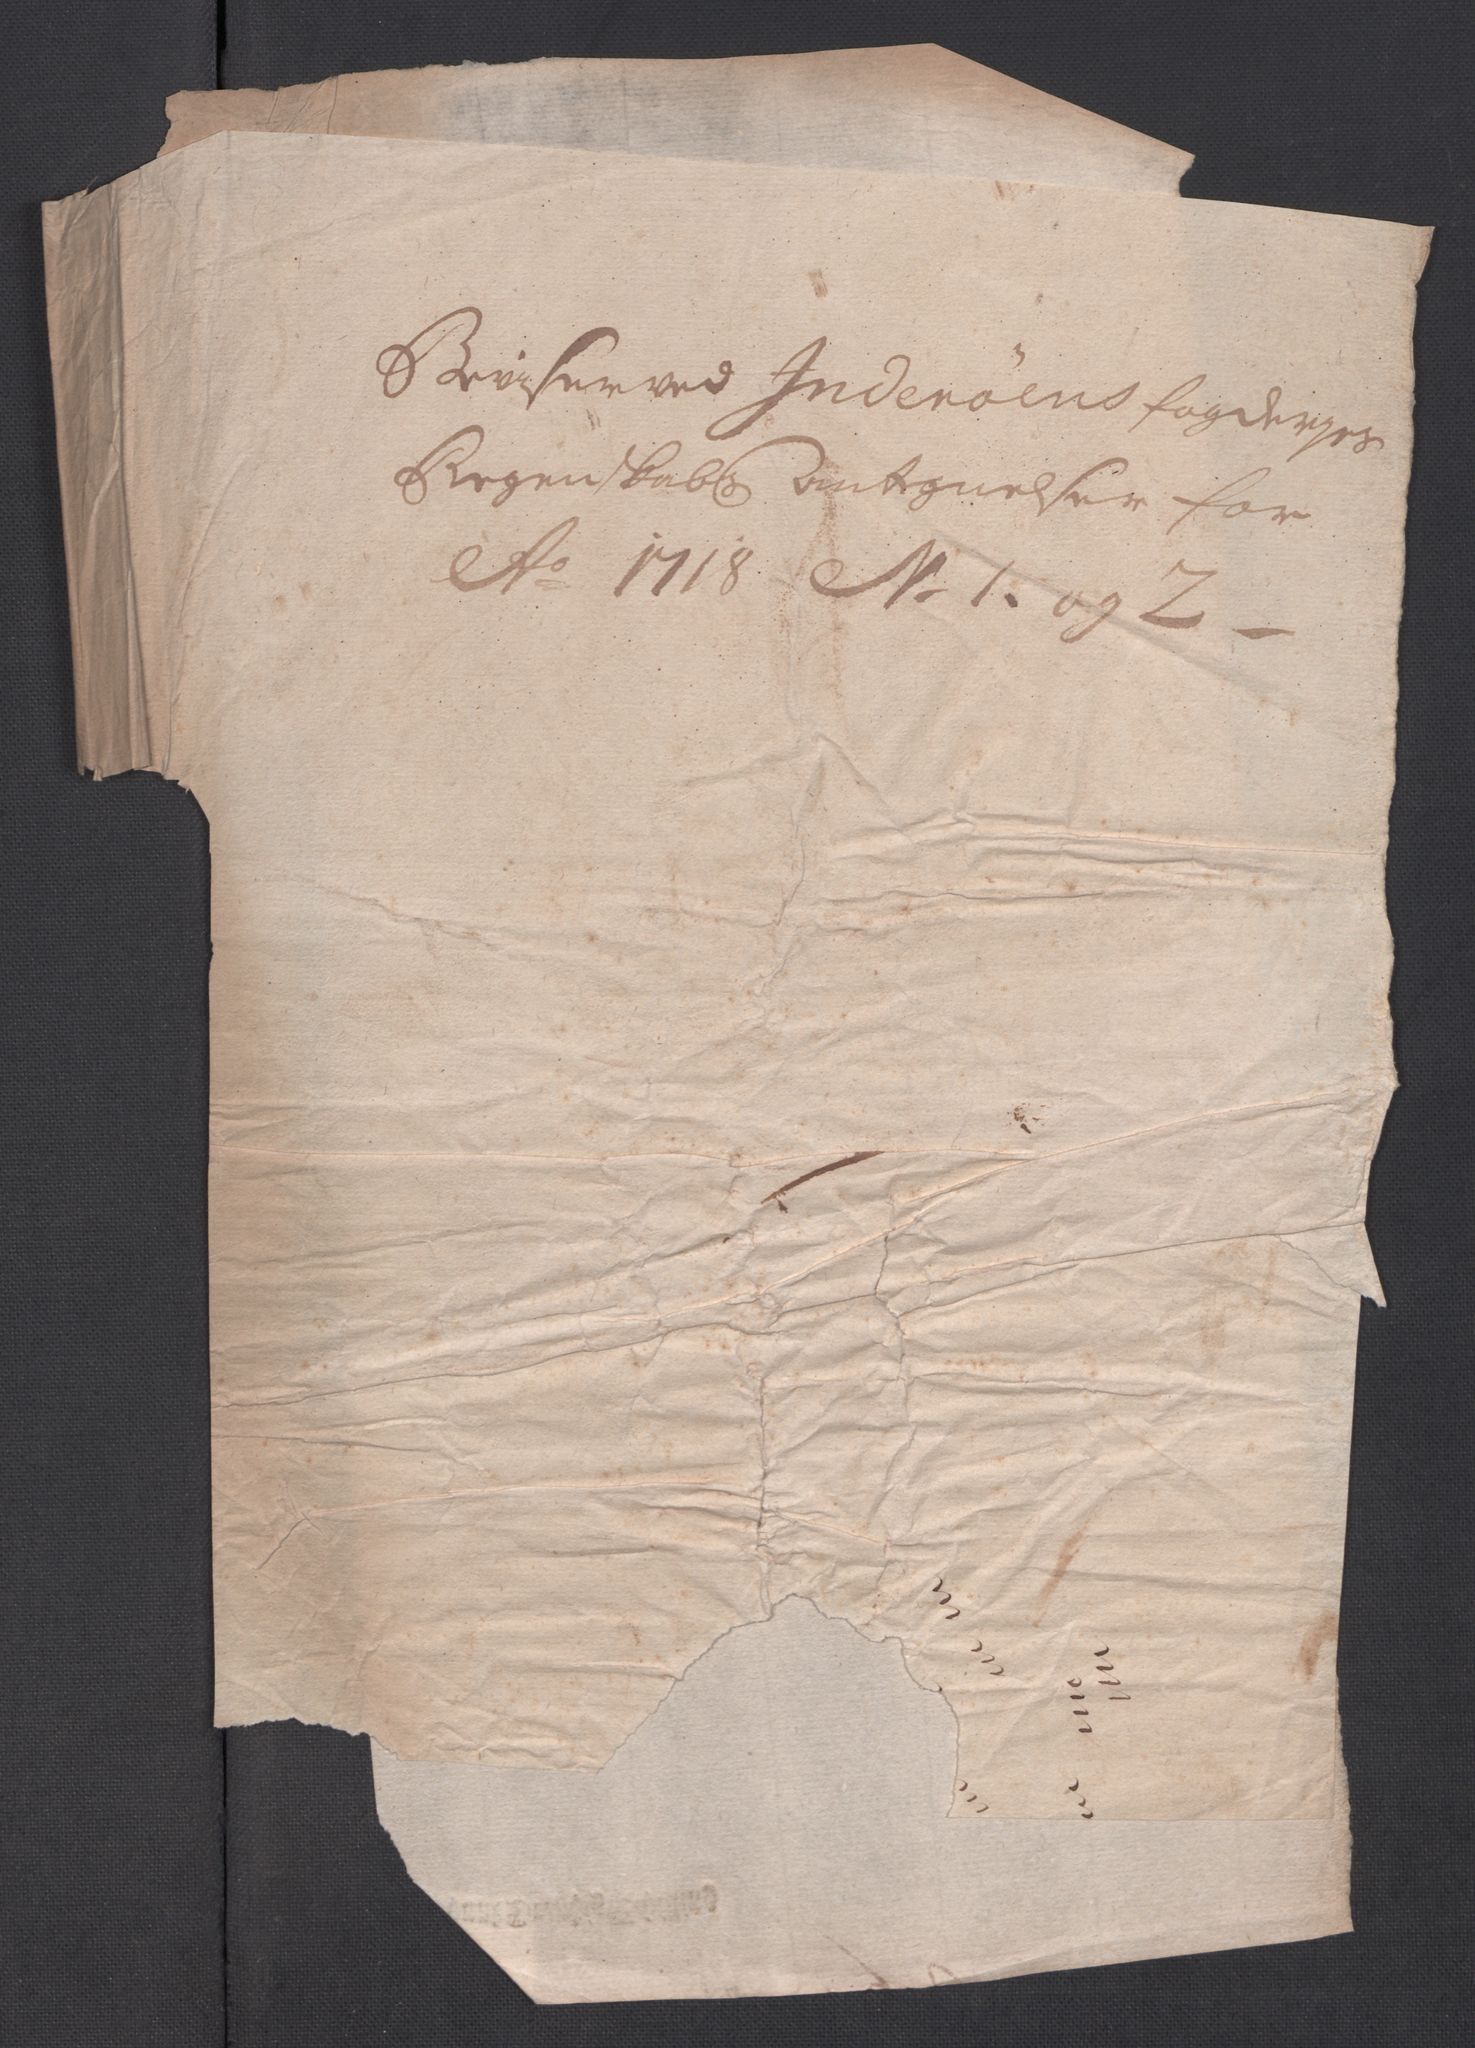 Beviiser ved Inderöens fogderjes
Regenskabs antegnelser for
Ao 1718 N. 1. og 2 –